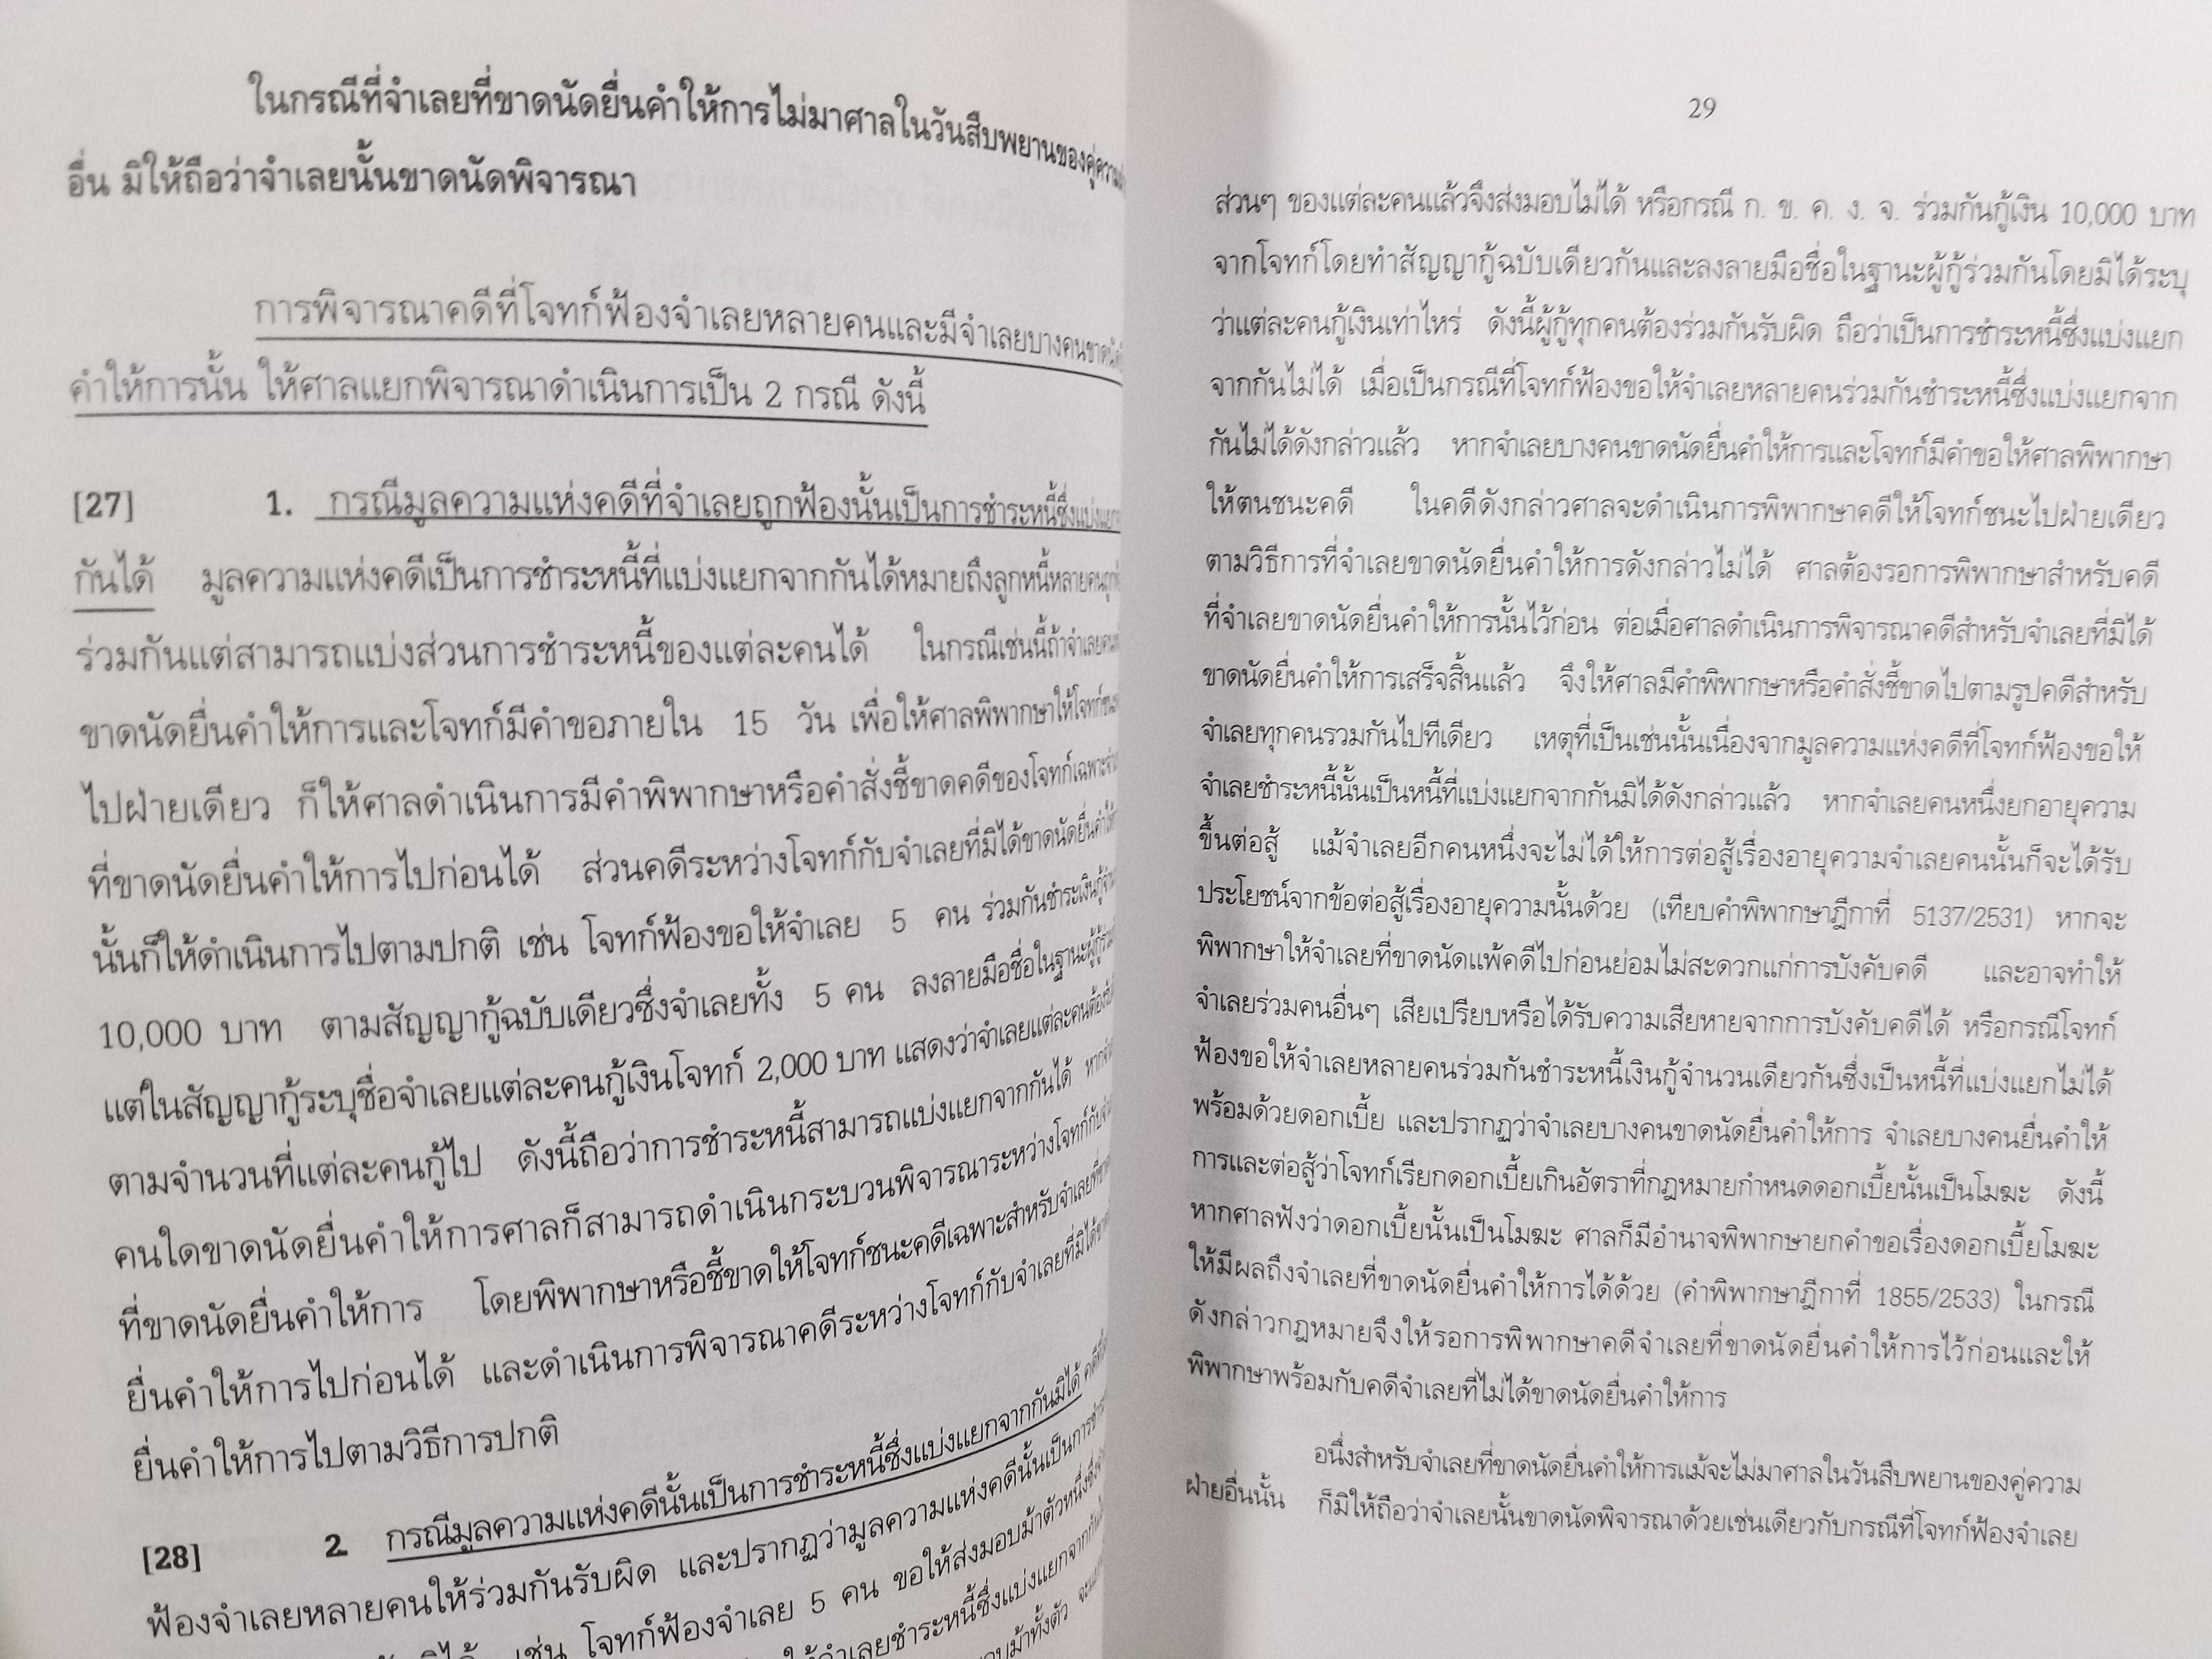 ในกรณีที่จำเลยที่ขาดนัดยื่นคำให้การไม่มาศาลในวันสืบพยานของคู่ความ
อื่น มิให้ถือว่าจำเลยนั้นขาดนัดพิจารณา
การพิจารณาคดีที่โจทก์ฟ้องจำเลยหลายคนและมีจำเลยบางคนขาดนัด
คำให้การนั้น ให้ศาลแยกพิจารณาดำเนินการเป็น 2 กรณี ดังนี้
[27] 1. กรณีมูลความแห่งคดีที่จำเลยถูกฟ้องนั้นเป็นการชำระหนี้ซึ่งแบ่งแยก
กันได้ มูลความแห่งคดีเป็นการชำระหนี้ที่แบ่งแยกจากกันได้หมายถึงลูกหนี้หลายคน
ร่วมกันแต่สามารถแบ่งส่วนการชำระหนี้ของแต่ละคนได้ ในกรณีเช่นนี้ถ้าจำเลย
ขาดนัดยื่นคำให้การและโจทก์มีคำขอภายใน 15 วัน เพื่อให้ศาลพิพากษาให้โจทก์ชนะ
ไปฝ่ายเดียว ก็ให้ศาลดำเนินการมีคำพิพากษาหรือคำสั่งชี้ขาดคดีของโจทก์เฉพาะ
ที่ขาดนัดยื่นคำให้การไปก่อนได้ ส่วนคดีระหว่างโจทก์กับจำเลยที่มิได้ขาดนัดยื่น
นั้นก็ให้ดำเนินการไปตามปกติ เช่น โจทก์ฟ้องขอให้จำเลย 5 คน ร่วมกันชำระเงินกู้
10,000 บาท ตามสัญญากู้ฉบับเดียวซึ่งจำเลยทั้ง 5 คน ลงลายมือชื่อในฐานะผู้กู้
แต่ในสัญญากู้ระบุชื่อจำเลยแต่ละคนกู้เงินโจทก์ 2,000 บาท แสดงว่าจำเลยแต่ละคนต้อง
ตามจำนวนที่แต่ละคนกู้ไป ดังนี้ถือว่าการชำระหนี้สามารถแบ่งแยกจากกันได้
คนใดขาดนัดยื่นคำให้การศาลก็สามารถดำเนินกระบวนพิจารณาระหว่างโจทก์กับ
ที่ขาดนัดยื่นคำให้การ โดยพิพากษาหรือชี้ขาดให้โจทก์ชนะคดีเฉพาะสำหรับจำเลย
ยื่นคำให้การไปก่อนได้ และดำเนินการพิจารณาคดีระหว่างโจทก์กับจำเลยที่มิได้
ยื่นคำให้การไปตามวิธีการปกติ
[28] 2. กรณีมูลความแห่งคดีนั้นเป็นการชำระหนี้ซึ่งแบ่งแยกจากกันมิได้
ฟ้องจำเลยหลายคนให้ร่วมกันรับผิด และปรากฏว่ามูลความแห่งคดีนั้นเป็นการชำระ
เช่น โจทก์ฟ้องจำเลย 5 คน ขอให้ส่งมอบม้าตัวหนึ่ง
จำเลยชำระหนี้ซึ่งแบ่งแยกจากกัน
ม้าทั้งตัว
29
ส่วนๆ ของแต่ละคนแล้วจึงส่งมอบไม่ได้ หรือกรณี ก. ข. ค. ง. จ. ร่วมกันกู้เงิน 10,000 บาท
จากโจทก์โดยทำสัญญากู้ฉบับเดียวกันและลงลายมือชื่อในฐานะผู้กู้ร่วมกันโดยมิได้ระบุ
ว่าแต่ละคนกู้เงินเท่าไหร่ ดังนี้ผู้กู้ทุกคนต้องร่วมกันรับผิด ถือว่าเป็นการชำระหนี้ซึ่งแบ่งแยก
จากกันไม่ได้ เมื่อเป็นกรณีที่โจทก์ฟ้องขอให้จำเลยหลายคนร่วมกันชำระหนี้ซึ่งแบ่งแยกจาก
กันไม่ได้ดังกล่าวแล้ว หากจำเลยบางคนขาดนัดยื่นคำให้การและโจทก์มีคำขอให้ศาลพิพากษา
ให้ตนชนะคดี ในคดีดังกล่าวศาลจะดำเนินการพิพากษาคดีให้โจทก์ชนะไปฝ่ายเดียว
ตามวิธีการที่จำเลยขาดนัดยื่นคำให้การดังกล่าวไม่ได้ ศาลต้องรอการพิพากษาสำหรับคดี
ที่จำเลยขาดนัดยื่นคำให้การนั้นไว้ก่อน ต่อเมื่อศาลดำเนินการพิจารณาคดีสำหรับจำเลยที่มิได้
ขาดนัดยื่นคำให้การเสร็จสิ้นแล้ว จึงให้ศาลมีคำพิพากษาหรือคำสั่งชี้ขาดไปตามรูปคดีสำหรับ
จำเลยทุกคนรวมกันไปทีเดียว เหตุที่เป็นเช่นนั้นเนื่องจากมูลความแห่งคดีที่โจทก์ฟ้องขอให้
จำเลยชำระหนี้นั้นเป็นหนี้ที่แบ่งแยกจากกันมิได้ดังกล่าวแล้ว หากจำเลยคนหนึ่งยกอายุความ
ขึ้นต่อสู้ แม้จำเลยอีกคนหนึ่งจะไม่ได้ให้การต่อสู้เรื่องอายุความจำเลยคนนั้นก็จะได้รับ
ประโยชน์จากข้อต่อสู้เรื่องอายุความนั้นด้วย (เทียบคำพิพากษาฎีกาที่ 5137/2531) หากจะ
พิพากษาให้จำเลยที่ขาดนัดแพ้คดีไปก่อนย่อมไม่สะดวกแก่การบังคับคดี และอาจทำให้
จำเลยร่วมคนอื่นๆ เสียเปรียบหรือได้รับความเสียหายจากการบังคับคดีได้ หรือกรณีโจทก์
ฟ้องขอให้จำเลยหลายคนร่วมกันชำระหนี้เงินกู้จำนวนเดียวกันซึ่งเป็นหนี้ที่แบ่งแยกไม่ได้
พร้อมด้วยดอกเบี้ย และปรากฏว่าจำเลยบางคนขาดนัดยื่นคำให้การ จำเลยบางคนยื่นคำให้
การและต่อสู้ว่าโจทก์เรียกดอกเบี้ยเกินอัตราที่กฎหมายกำหนดดอกเบี้ยนั้นเป็นโมฆะ ดังนี้
หากศาลฟังว่าดอกเบี้ยนั้นเป็นโมฆะ ศาลก็มีอำนาจพิพากษายกคำขอเรื่องดอกเบี้ยโมฆะ
ให้มีผลถึงจำเลยที่ขาดนัดยื่นคำให้การได้ด้วย (คำพิพากษาฎีกาที่ 1855/2533) ในกรณี
ดังกล่าวกฎหมายจึงให้รอการพิพากษาคดีจำเลยที่ขาดนัดยื่นคำให้การไว้ก่อนและให้
พิพากษาพร้อมกับคดีจำเลยที่ไม่ได้ขาดนัดยื่นคำให้การ
อนึ่งสำหรับจำเลยที่ขาดนัดยื่นคำให้การแม้จะไม่มาศาลในวันสืบพยานของคู่ความ
ฝ่ายอื่นนั้น ก็มิให้ถือว่าจำเลยนั้นขาดนัดพิจารณาด้วยเช่นเดียวกับกรณีที่โจทก์ฟ้องจำเลย